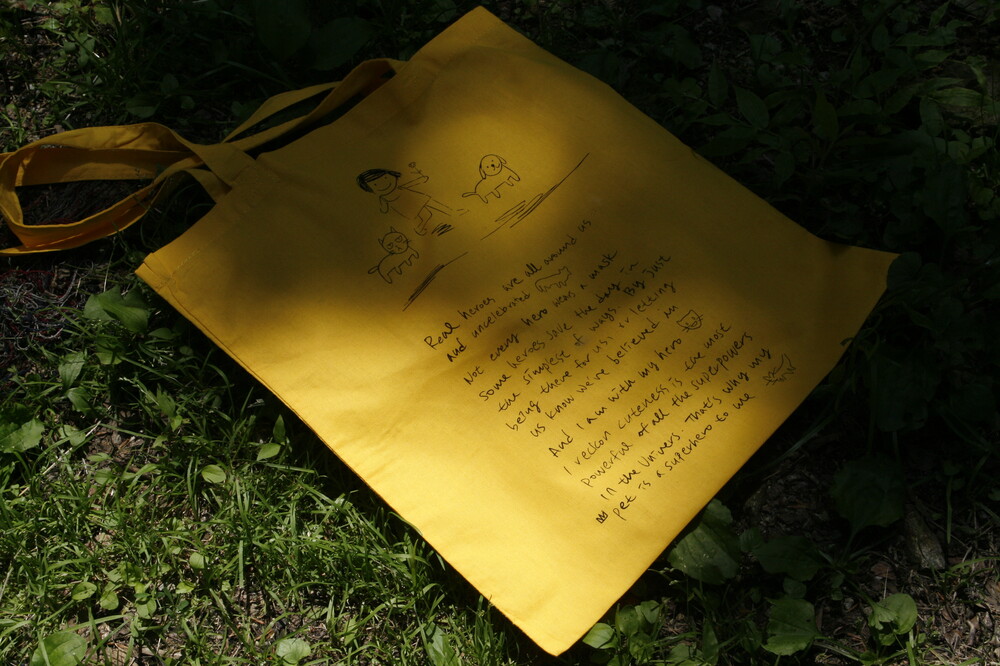 Real heroes are all around us
And uncelebrated
Not every hero wears a mask
Some heroes save the day in
the simplest of ways. By Just
being there for us, or letting
us know we're believed in
And I am with my hero
I reckon cuteness is the most
powerful of all the superpowers
In the Univers. That's why my
pet is a superhero to me